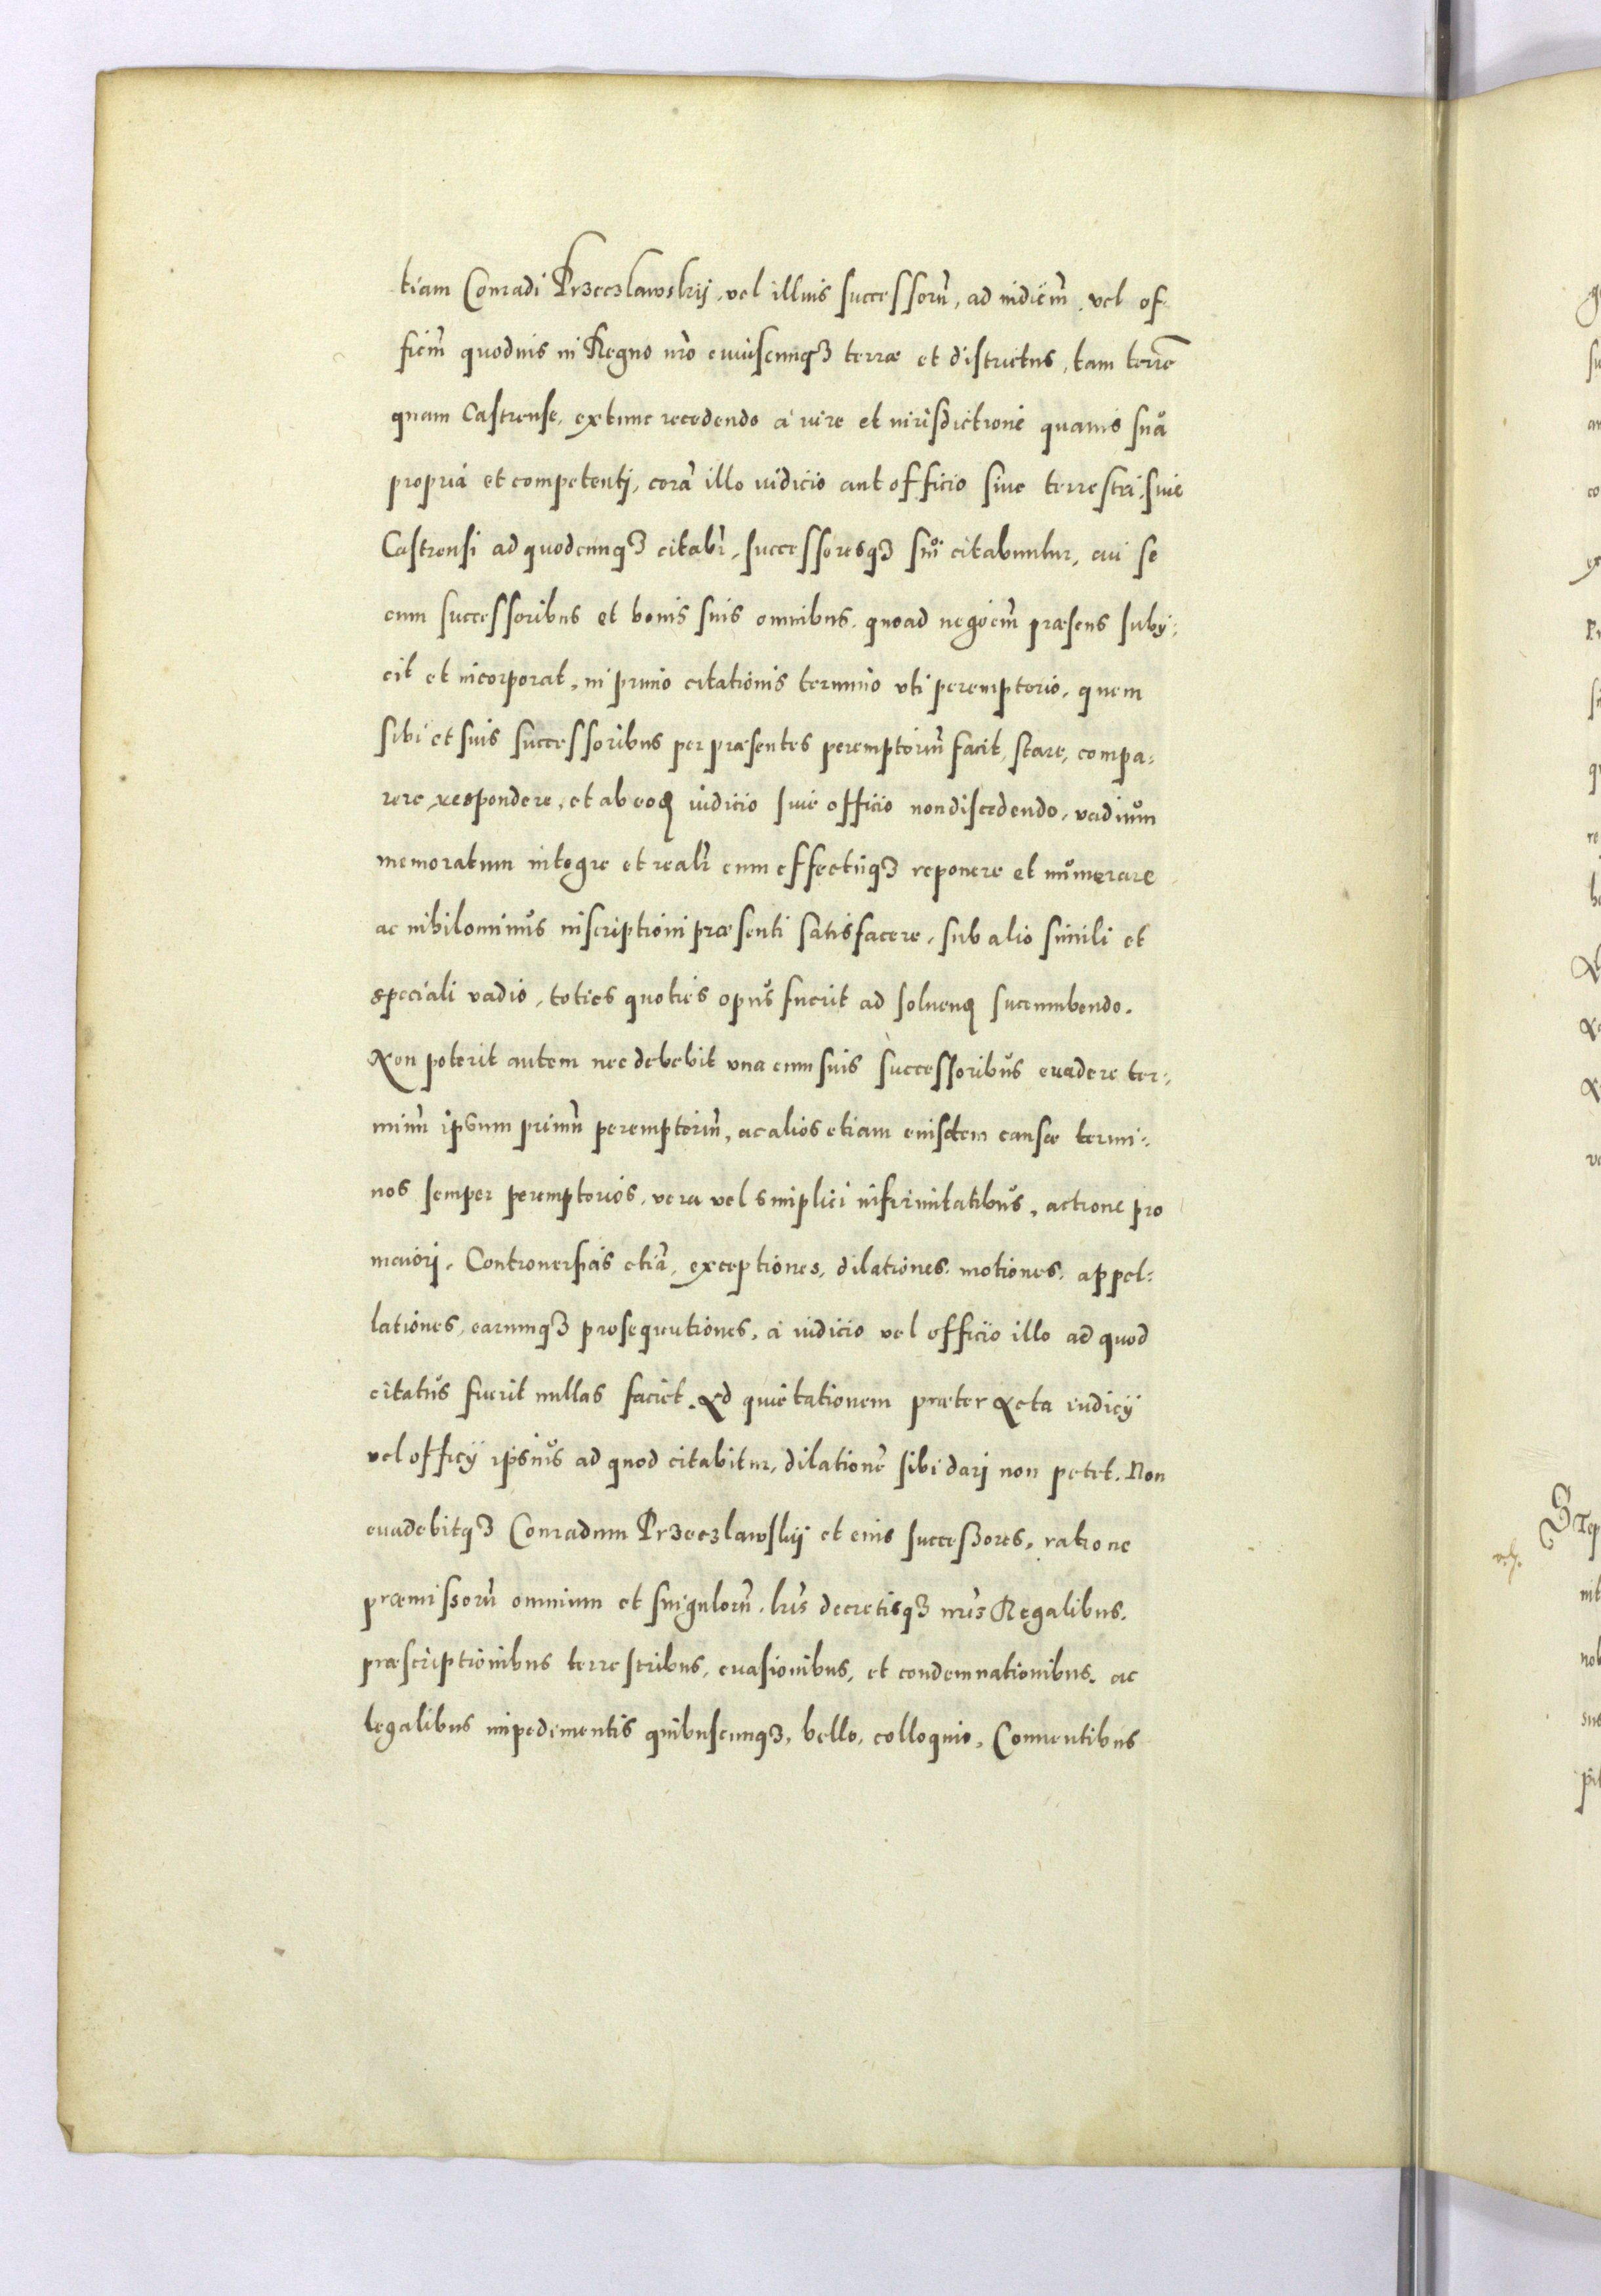 tiam Conradi Przeczlawskij, vel illius successorũ, ad iudiciũ, vel of-
ficiũ quoduis in Regno nr̃o cuiuscunqꝫ terræ et districtus, tam terrẽ
quam Castrense, extunc recedendo à iure et iurisdictione quauis suå
propria et competenti, corã illo iudicio aut officio siue terrestri, siue
Castrensi ad quodcunqꝫ citabr̃, successoresqꝫ sui citabuntur, cui se
cum successoribus et bonis suis omnibus, quoad negociũ præsens subij-
cit et incorporat, in primo citationis termino vti peremptorio, quem
sibi et suis successoribus per præsentes peremptoriũ facit, stare, compa-
rere, respondere, et ab eoꝗ iudicio siue officio non discedendo, vadium
memoratum integre et realr̃ cum effectuqꝫ reponere et numerare
ac nihilominus inscriptioni præsenti satisfacere, sub alio simili et
speciali vadio, toties quoties opus fuerit ad soluenꝗ succumbendo.
Non poterit autem nec debebit vna cum suis successoribus euadere ter-
minũ ipsum primũ peremptoriũ, ac alios etiam eiusdem causæ termi-
nos semper peremptorios, vera vel simplici infirmitatibus, actione pro
maiori. Controuersias etiã, exceptiones, dilationes, motiones, appel-
lationes, earumqꝫ prosequutiones, à iudicio vel officio illo ad quod
citatus fuerit nullas faciet. Ad quietationem præter Acta iudicij
vel officij ipsius ad quod citabitur, dilationẽ sibi dari non petet. Non
euadebitqꝫ Conradum Przeczlawskij et eius successores, ratione
præmissorũ omnium et singulorũ, lrĩs decretisqꝫ nrĩs Regalibus,
præscriptionibus terrestribus, euasionibus, et condemnationibus, ac
legalibus impedimentis quibuscunqꝫ, bello, colloquio, Conuentibus